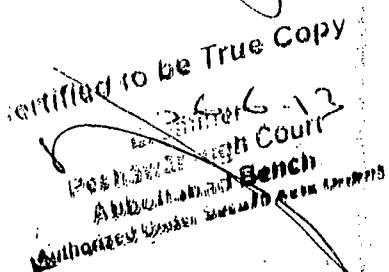 Certified to be True Copy
26-6-13
Examiner
Peshawar High Court
Abbottabad Bench
Authorized Under